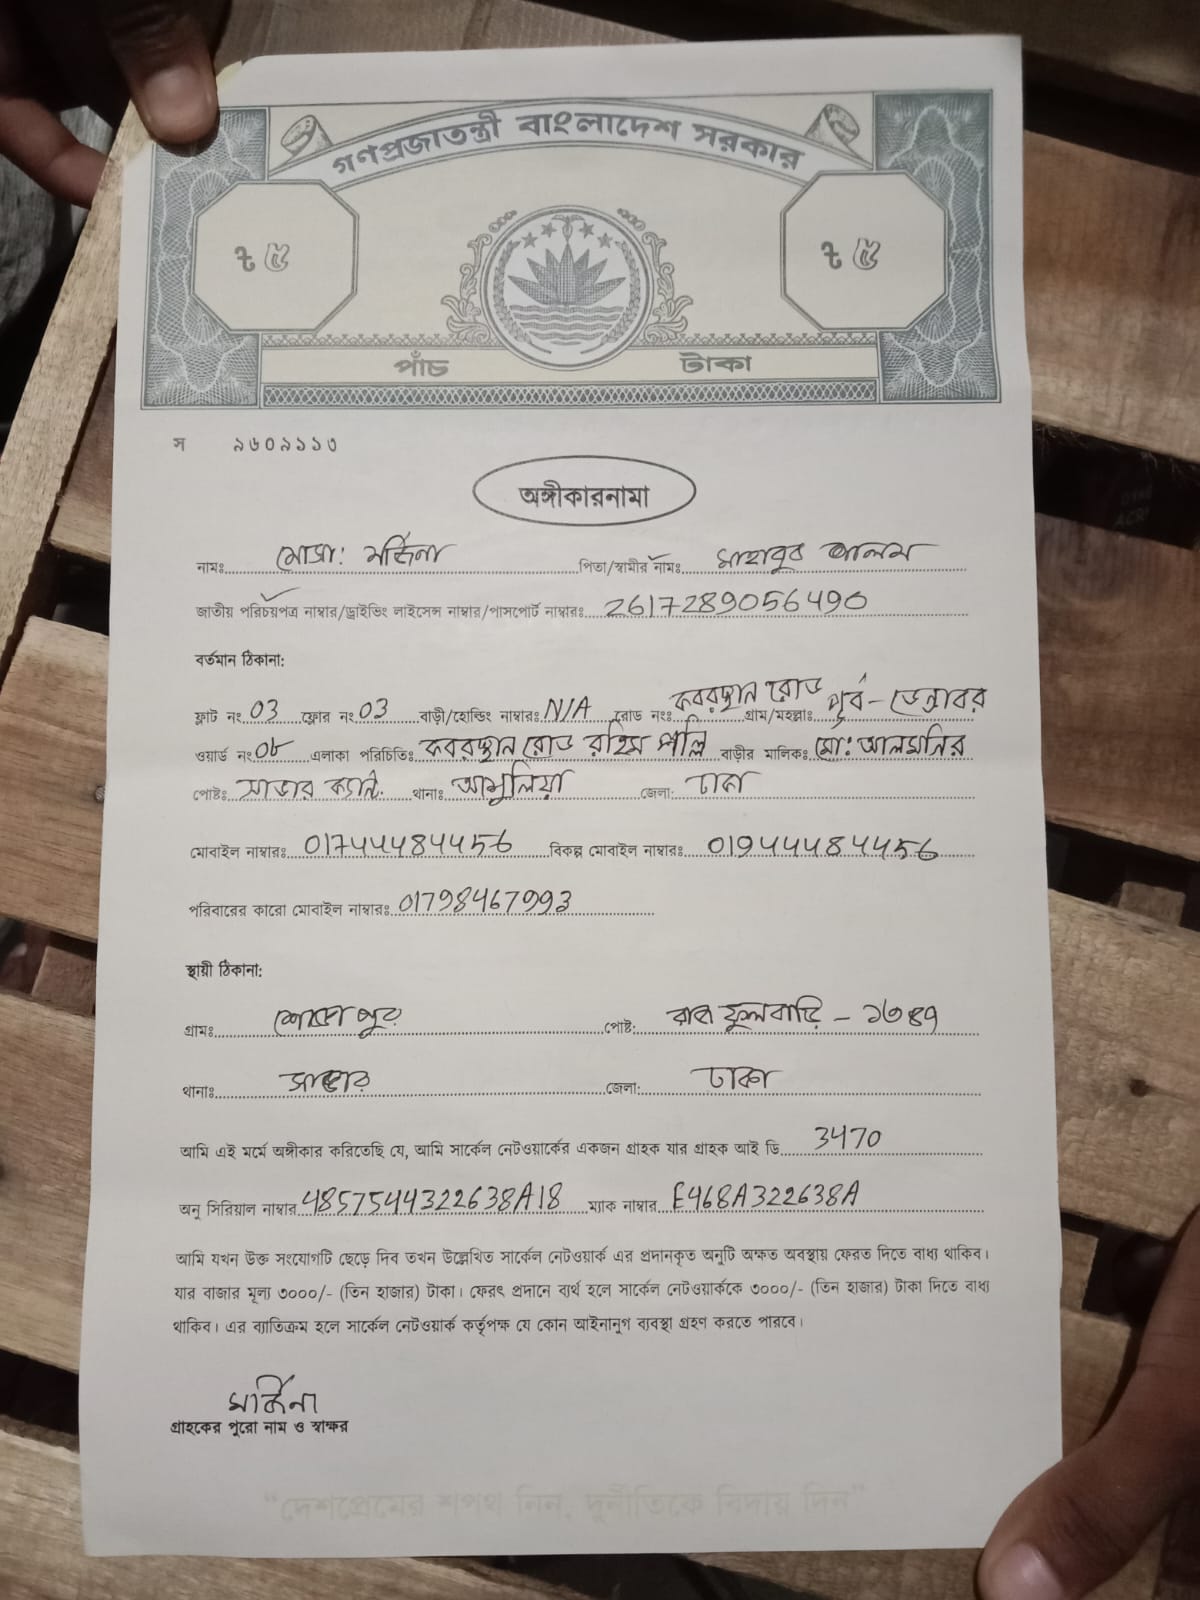 গণপ্রজাতন্ত্রী বাংলাদেশ সরকার
৳ ৫ ৳ ৫
পাঁচ টাকা
স ৯৬০৯১১৩
অঙ্গীকারনামা
নামঃ মোসা: মর্জিনা পিতা/স্বামীর নামঃ মাহাবুব আলম
জাতীয় পরিচয়পত্র নাম্বার/ড্রাইভিং লাইসেন্স নাম্বার/পাসপোর্ট নাম্বারঃ 2617289056490
বর্তমান ঠিকানা:
ফ্লাট নং 03 ফ্লোর নং 03 বাড়ী/হোল্ডিং নাম্বারঃ N/A রোড নংঃ কবরস্থান রোড গ্রাম/মহল্লাঃ পূর্ব-ডেন্ডাবর
ওয়ার্ড নং ০৮ এলাকা পরিচিতিঃ কবরস্থান রোড রহিম পল্লি বাড়ীর মালিকঃ মো: আলমনির
পোষ্টঃ সাভার ক্যান্ট. থানাঃ আশুলিয়া জেলা: ঢাকা
মোবাইল নাম্বারঃ 01744484456 বিকল্প মোবাইল নাম্বারঃ 01944484456
পরিবারের কারো মোবাইল নাম্বারঃ 01798467993
স্থায়ী ঠিকানা:
গ্রামঃ পোষ্ট: ফুলবাড়ি - ১৩৪৭
থানাঃ সাভার জেলা: ঢাকা
আমি এই মর্মে অঙ্গীকার করিতেছি যে, আমি সার্কেল নেটওয়ার্কের একজন গ্রাহক যার গ্রাহক আই ডি 3470
অনু সিরিয়াল নাম্বার 4857544322638A18 ম্যাক নাম্বার E468A322638A
আমি যখন উক্ত সংযোগটি ছেড়ে দিব তখন উল্লেখিত সার্কেল নেটওয়ার্ক এর প্রদানকৃত অনুটি অক্ষত অবস্থায় ফেরত দিতে বাধ্য থাকিব।
যার বাজার মূল্য ৩০০০/- (তিন হাজার) টাকা। ফেরৎ প্রদানে ব্যর্থ হলে সার্কেল নেটওয়ার্ককে ৩০০০/- (তিন হাজার) টাকা দিতে বাধ্য
থাকিব। এর ব্যাতিক্রম হলে সার্কেল নেটওয়ার্ক কর্তৃপক্ষ যে কোন আইনানুগ ব্যবস্থা গ্রহণ করতে পারবে।
মর্জিনা
গ্রাহকের পুরো নাম ও স্বাক্ষর
“দেশপ্রেমের শপথ নিন, দুর্নীতিকে বিদায় দিন”